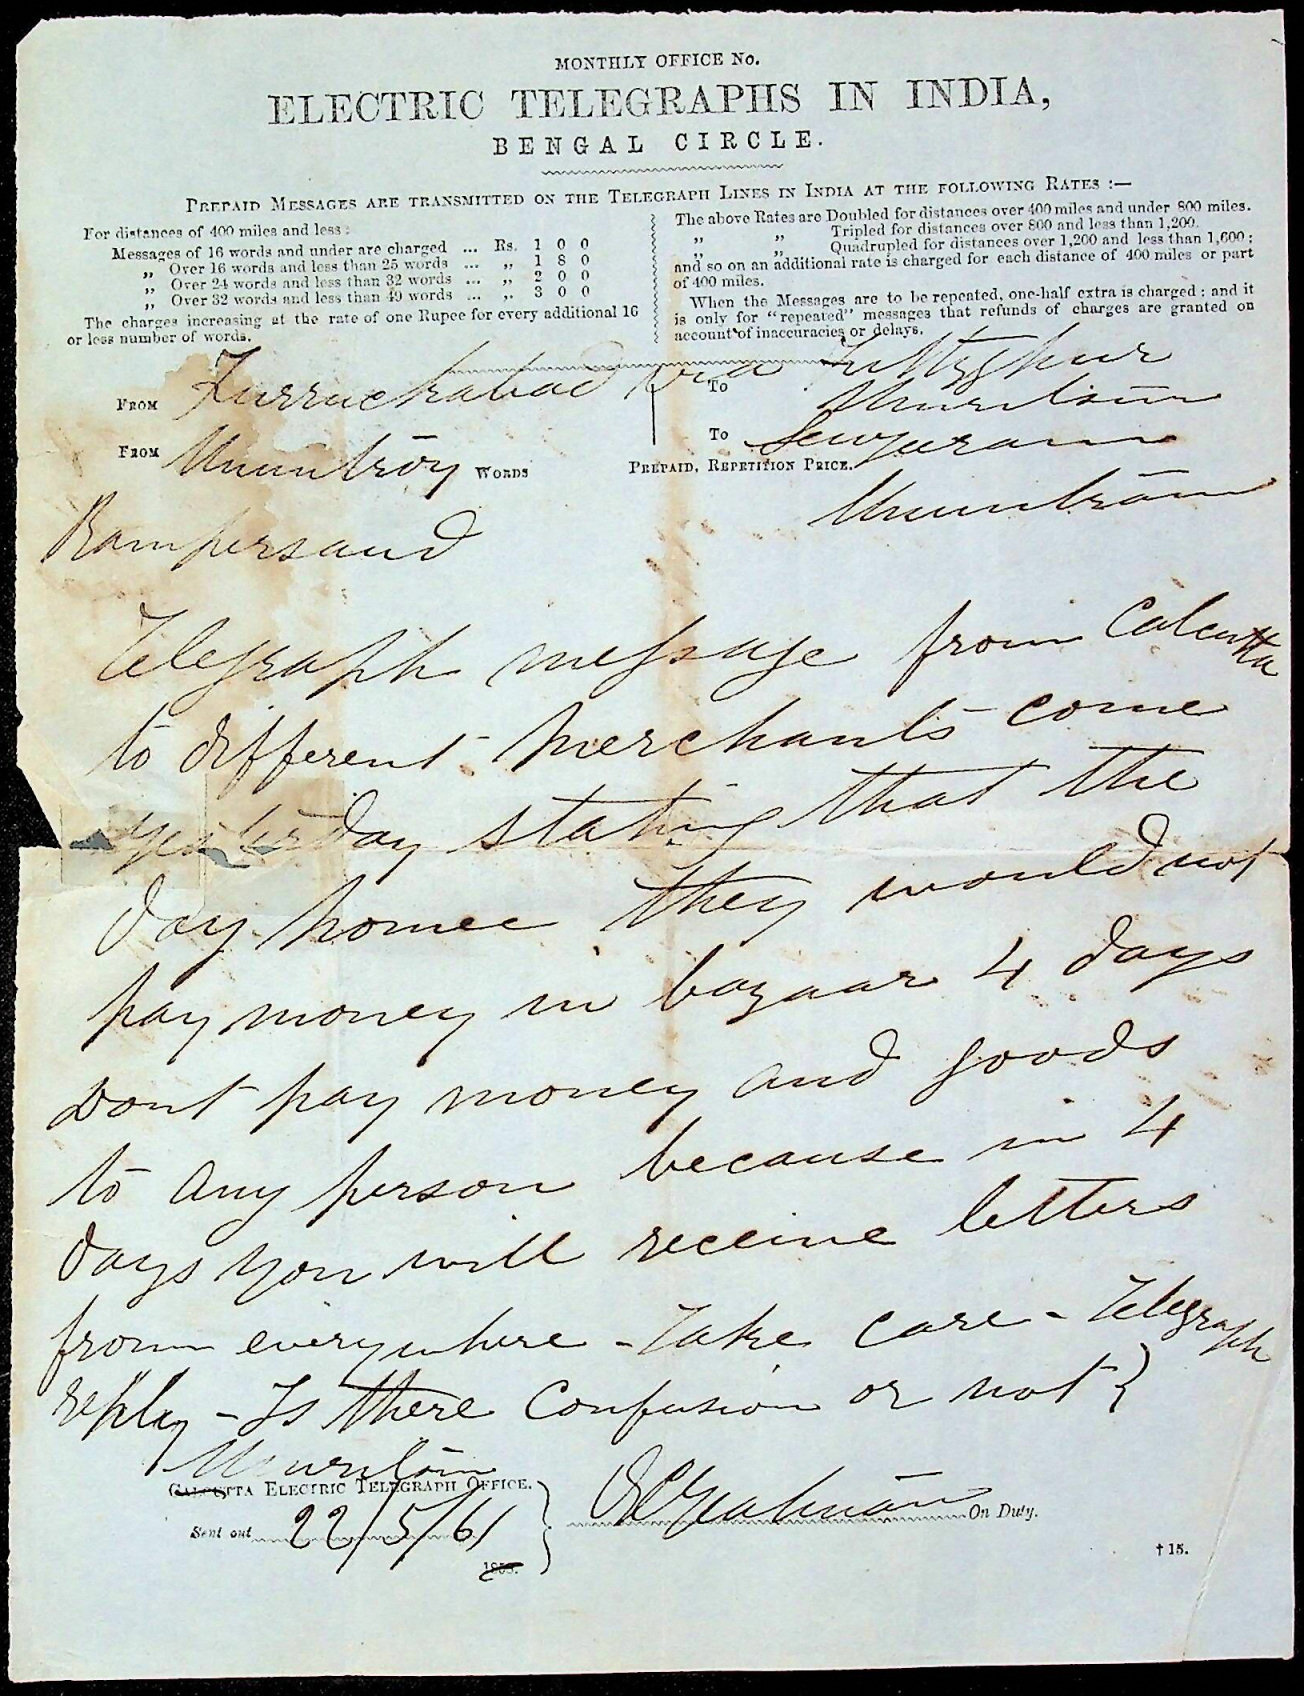 MONTHLY OFFICE No.
ELECTRIC TELEGRAPHS IN INDIA,
BENGAL CIRCLE.
PREPAID MESSAGES ARE TRANSMITTED ON THE TELEGRAPH LINES IN INDIA AT THE FOLLOWING RATES :—
For distances of 400 miles and less :
Messages of 16 words and under are charged ... Rs. 1 0 0
„ Over 16 words and less than 25 words ... „ 1 8 0
„ Over 24 words and less than 32 words ... „ 2 0 0
„ Over 32 words and less than 49 words ... „ 3 0 0
The charges increasing at the rate of one Rupee for every additional 16
or less number of words.
The above Rates are Doubled for distances over 400 miles and under 800 miles.
„ „ Tripled for distances over 800 and less than 1,200.
„ „ Quadrupled for distances over 1,200 and less than 1,600 ;
and so on an additional rate is charged for each distance of 400 miles or part
of 400 miles.
When the Messages are to be repeated, one-half extra is charged ; and it
is only for "repeated" messages that refunds of charges are granted on
account of inaccuracies or delays.
FROM Furruckabad via Futtyghur
TO
FROM Munntroy WORDS
TO Sewguram
PREPAID, REPETITION PRICE.
Munntram
Rampersaud
Telegraph message from Calcutta
to different merchants come
yesterday stating that the
day homee they would not
pay money in bazaar 4 days
Dont pay money and goods
to any person because in 4
days you will receive letters
from everywhere - Take care - Telegraph
reply - Is there confusion or not }
CALCUTTA ELECTRIC TELEGRAPH OFFICE.
Sent out 22/5/61
On Duty.
185
† 15.